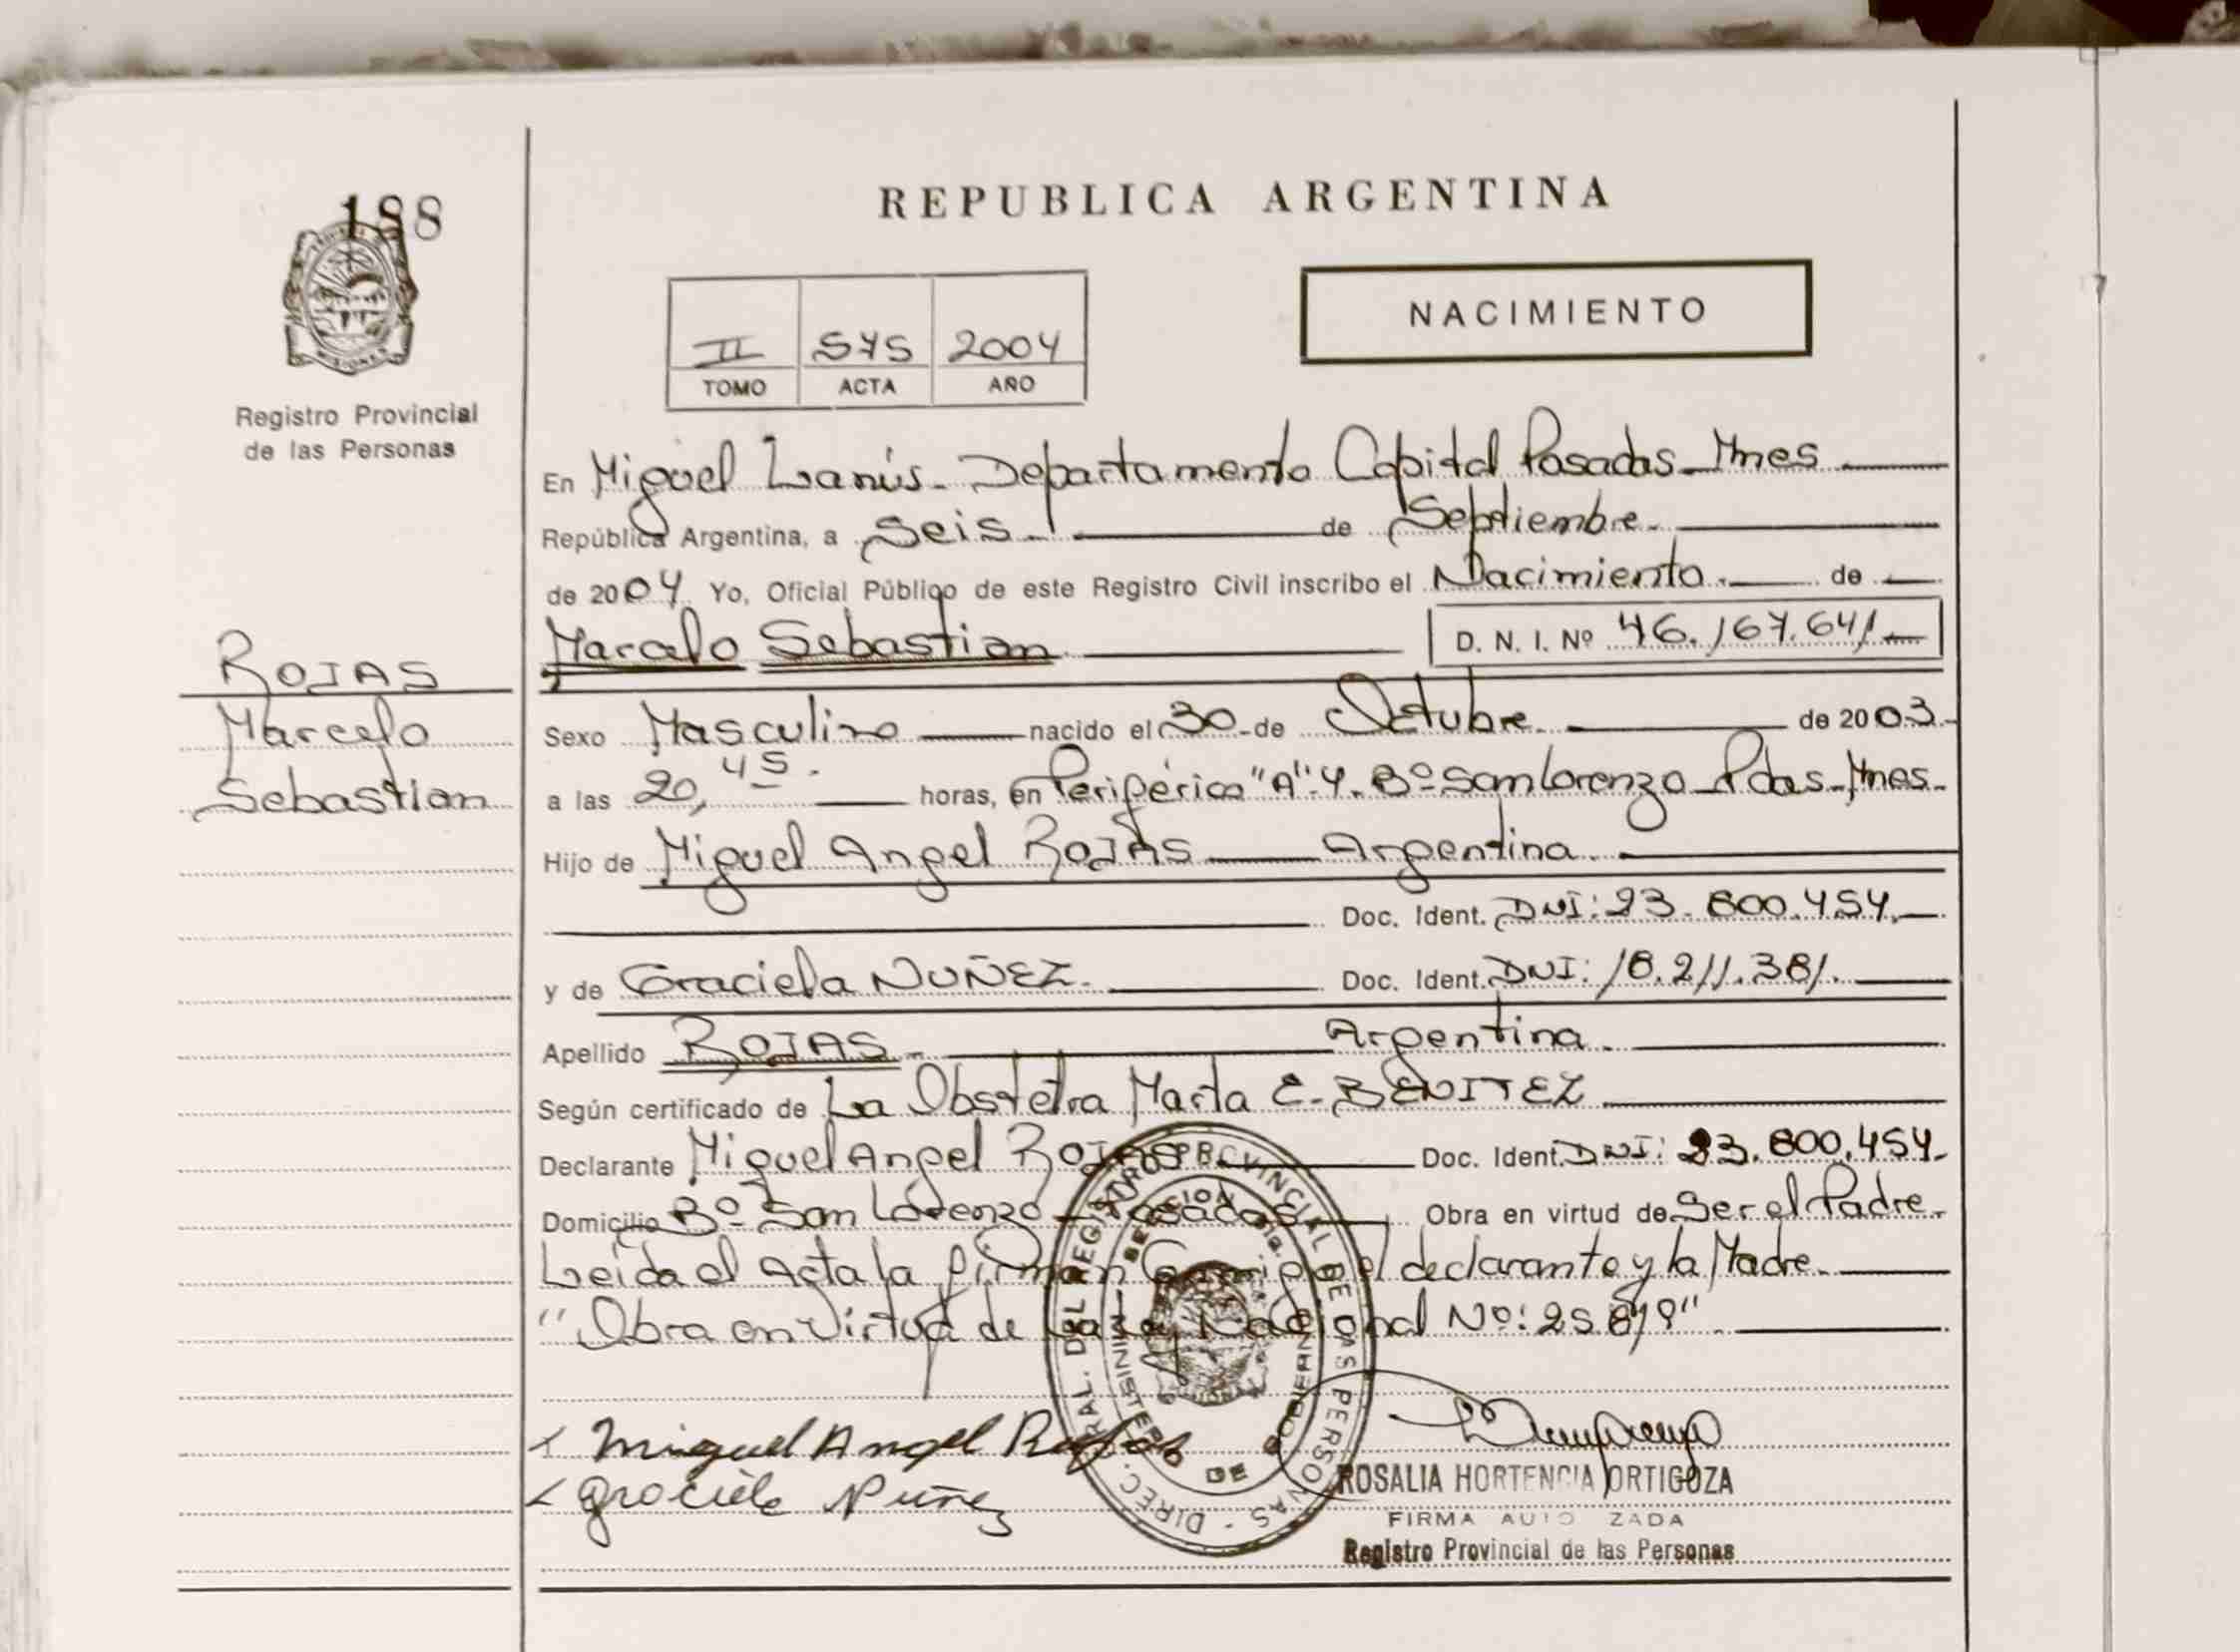 188
MISIONES
Registro Provincial
de las Personas
REPUBLICA ARGENTINA
NACIMIENTO
II 575 2004
TOMO ACTA AÑO
En Miguel Lanús - Departamento Capital Posadas - Mnes
República Argentina, a Seis de Septiembre
de 2004 Yo, Oficial Público de este Registro Civil inscribo el Nacimiento de
Marcelo Sebastian D. N. I. Nº 46.167.641
ROJAS
Marcelo
Sebastian
Sexo Masculino nacido el 30 de Octubre de 2003
a las 20,45 horas, en Periférica "A" 4. Bº San Lorenzo Pdas - Mnes
Hijo de Miguel Angel ROJAS Argentina
Doc. Ident. DNI: 23.800.454
y de Graciela NUÑEZ Doc. Ident. DNI: 18.211.381
Apellido ROJAS Argentina
Según certificado de La Obstetra Marta E. BENITEZ
Declarante Miguel Angel ROJAS Doc. Ident. DNI: 23.800.454
Domicilio Bº San Lorenzo - Posadas Obra en virtud de Ser el Padre
Leída el Acta la firman Conmigo el declarante y la Madre
"Obra en Virtud de la Ley Nacional Nº: 25.819"
Miguel Angel Rojas
Graciela Nuñez
DIREC. GRAL. DEL REGISTRO PROVINCIAL DE LAS PERSONAS
MINISTERIO DE GOBIERNO
ROSALIA HORTENCIA ORTIGOZA
FIRMA AUTO ZADA
Registro Provincial de las Personas